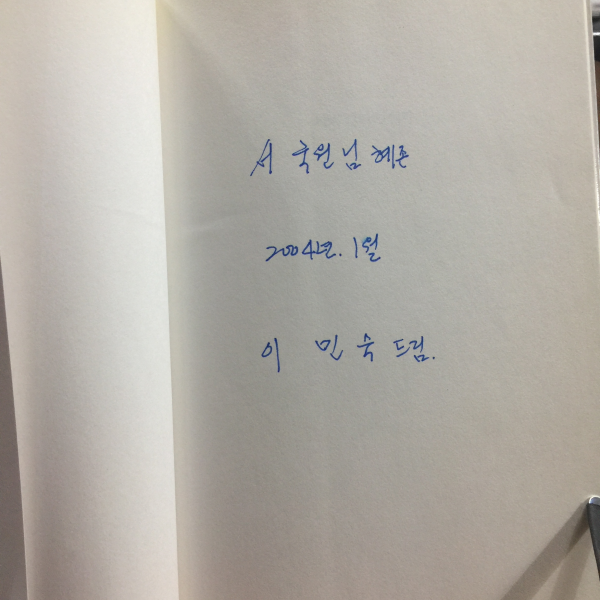 서 국원님 혜존
2004년. 1월
이 민 숙 드림.